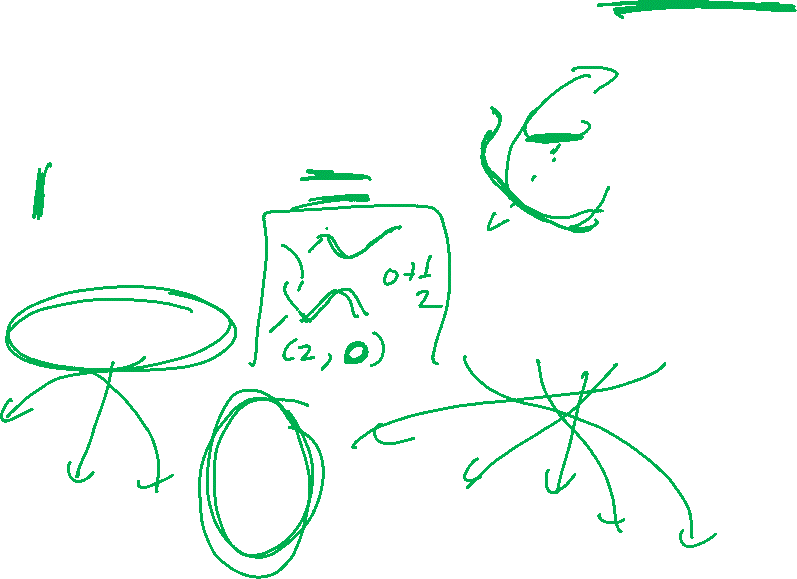 0+1
2
(2, 0)